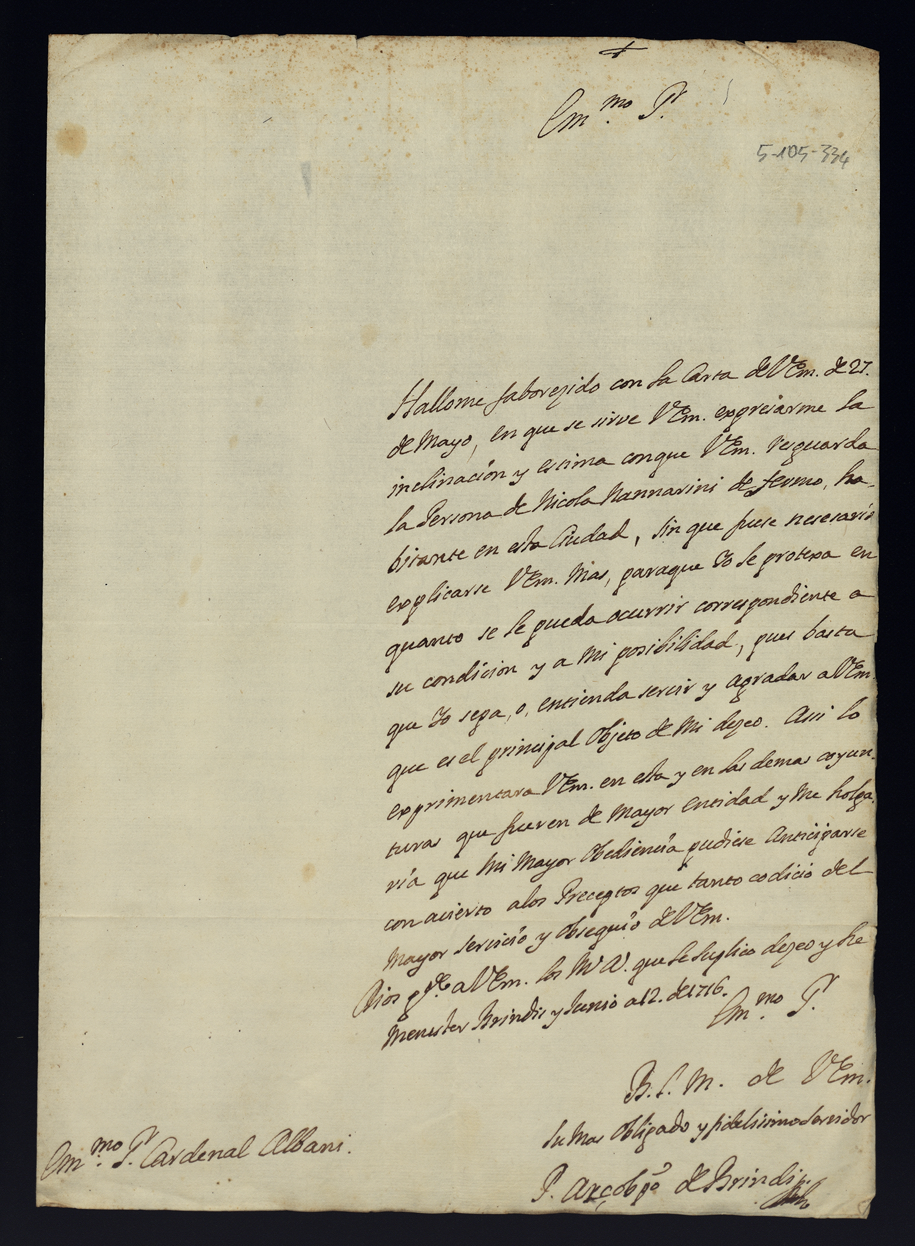 +
Em.mo S.r
5-105-334
Hallome faborezido con la Carta de VEm. de 27.
de Mayo, en que se sirve VEm. expresarme la
inclinación y estima conque VEm. resguarda
la Persona de Nicola Nannarini de fermo, ha-
bitante en esta Ciudad, sin que fuese nesesario
explicarse VEm. mas, paraque Yo le protexa en
quanto se le pueda ocurrir correspondiente a
su condicion y a mi posibilidad, pues basta
que Yo sepa, o, entienda servir y agradar a VEm.
que es el principal Objeto de Mi dezeo. Assi lo
exprimentara VEm. en esta y en las demas coyun-
turas que fueren de Mayor entidad y Me holga-
ría que Mi Mayor Obediencia pudiese Anticiparse
con acierto a los Preceptos que tanto codicio del
Mayor servicio y Obsequio de VEm.
Dios g.de a VEm. los M.s A.s que le suplico dezeo y he
Menester Brindis y Junio a 12. de 1716.
Em.mo S.r
B. L. M. de VEm.
Su Mas Obligado y fidelissimo Servidor
P. Arçobpo de Brindis
Em.mo S.r Cardenal Albani.